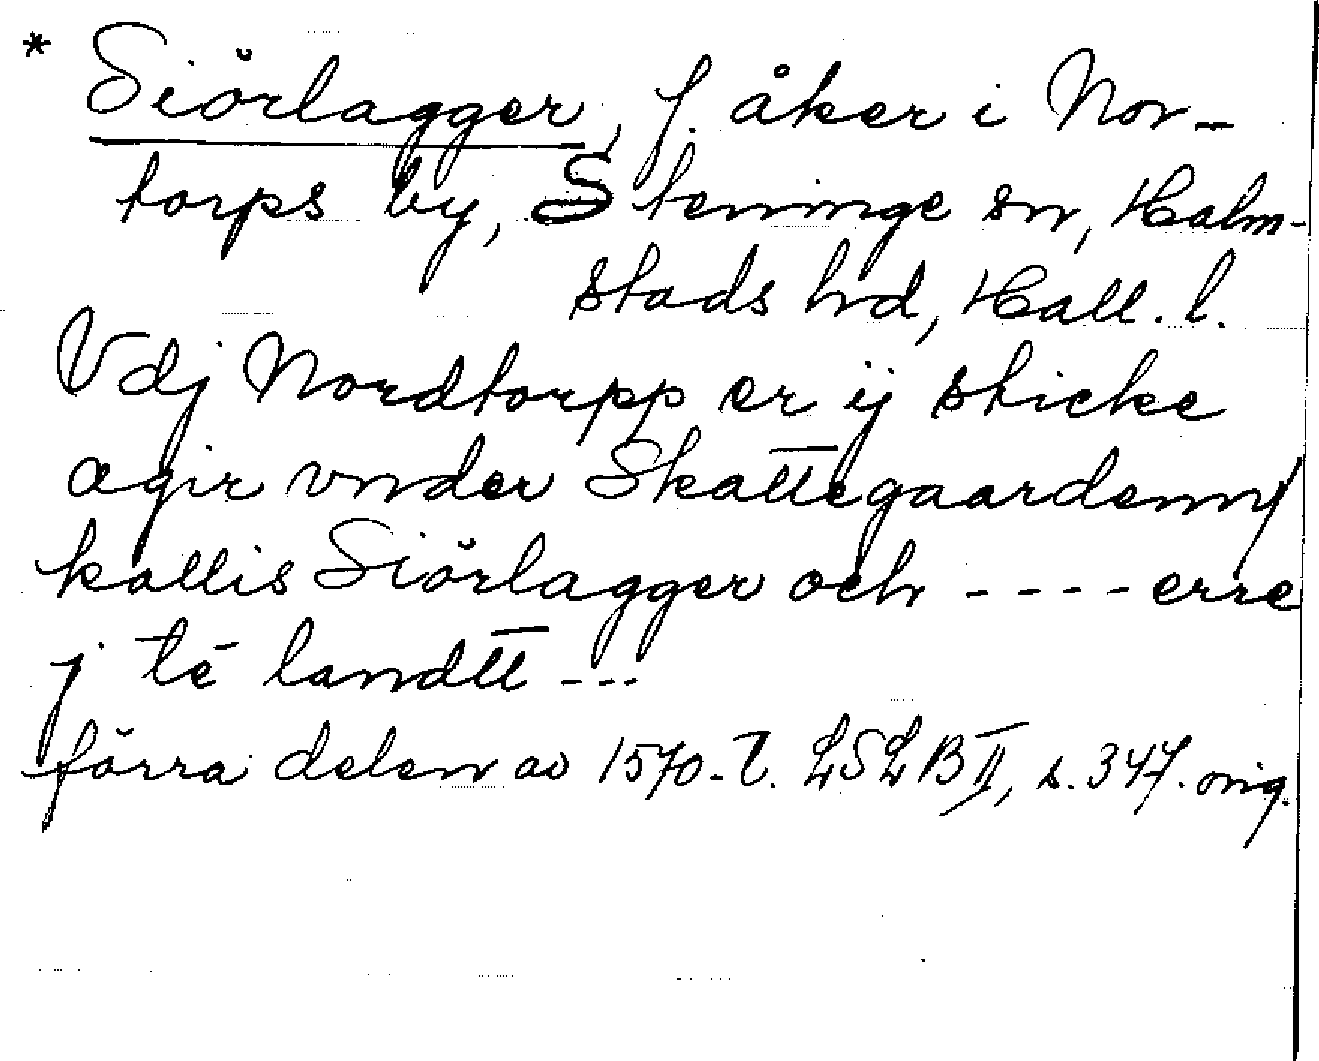 * Siörlagger, f. åker i Nor-
torps by, Steninge sn, Halm-
stads hd, Hall. l.
Vdj Nordtorpp er ij sticke
agir vnder Skattegaardenn/
kallis Siörlagger och - - - - erre
j té landtt - - -
förra delen av 1570-t. LSLB II, s. 347. orig.